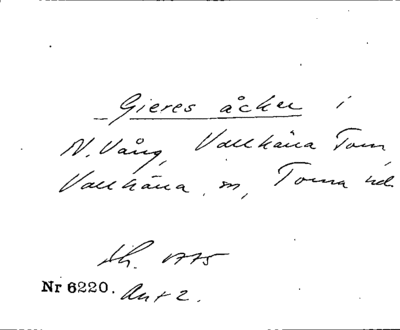 Gieres åcker i
N. Vång, Vallkärra Tom,
Vallkärra sn, Torna hd.
Lh. 1775
Nr 6220. Akt 2.